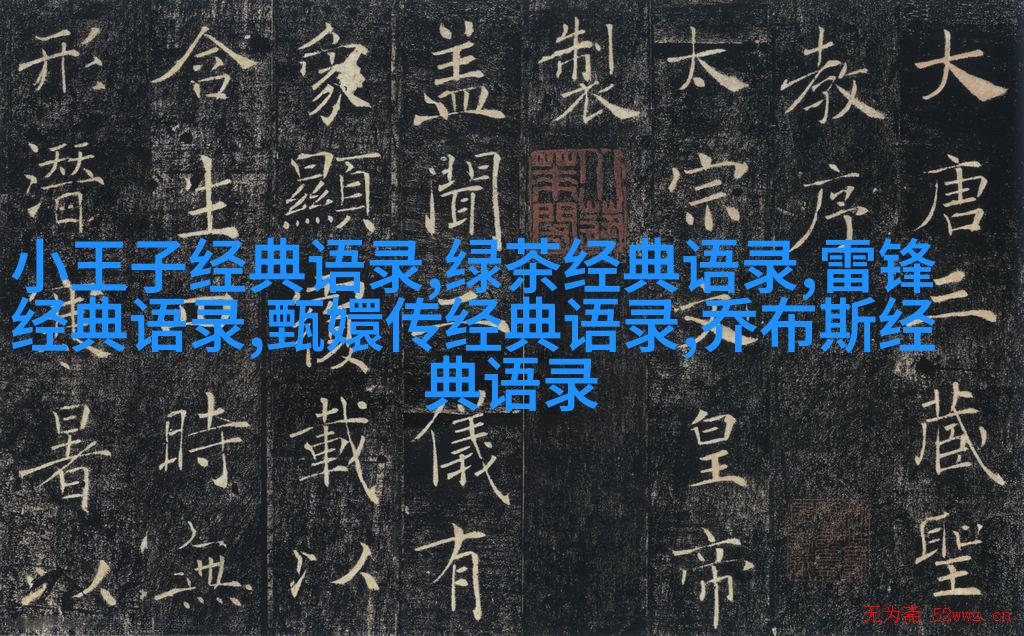 小王子经典语录,绿茶经典语录,雷锋
经典语录,甄嬛传经典语录,乔布斯经
典语录
大唐三藏聖
教序
太宗皇帝
製
盖聞儀有
象顯載以
含生時無
形潛暑以
无为斋 52wwz.cn